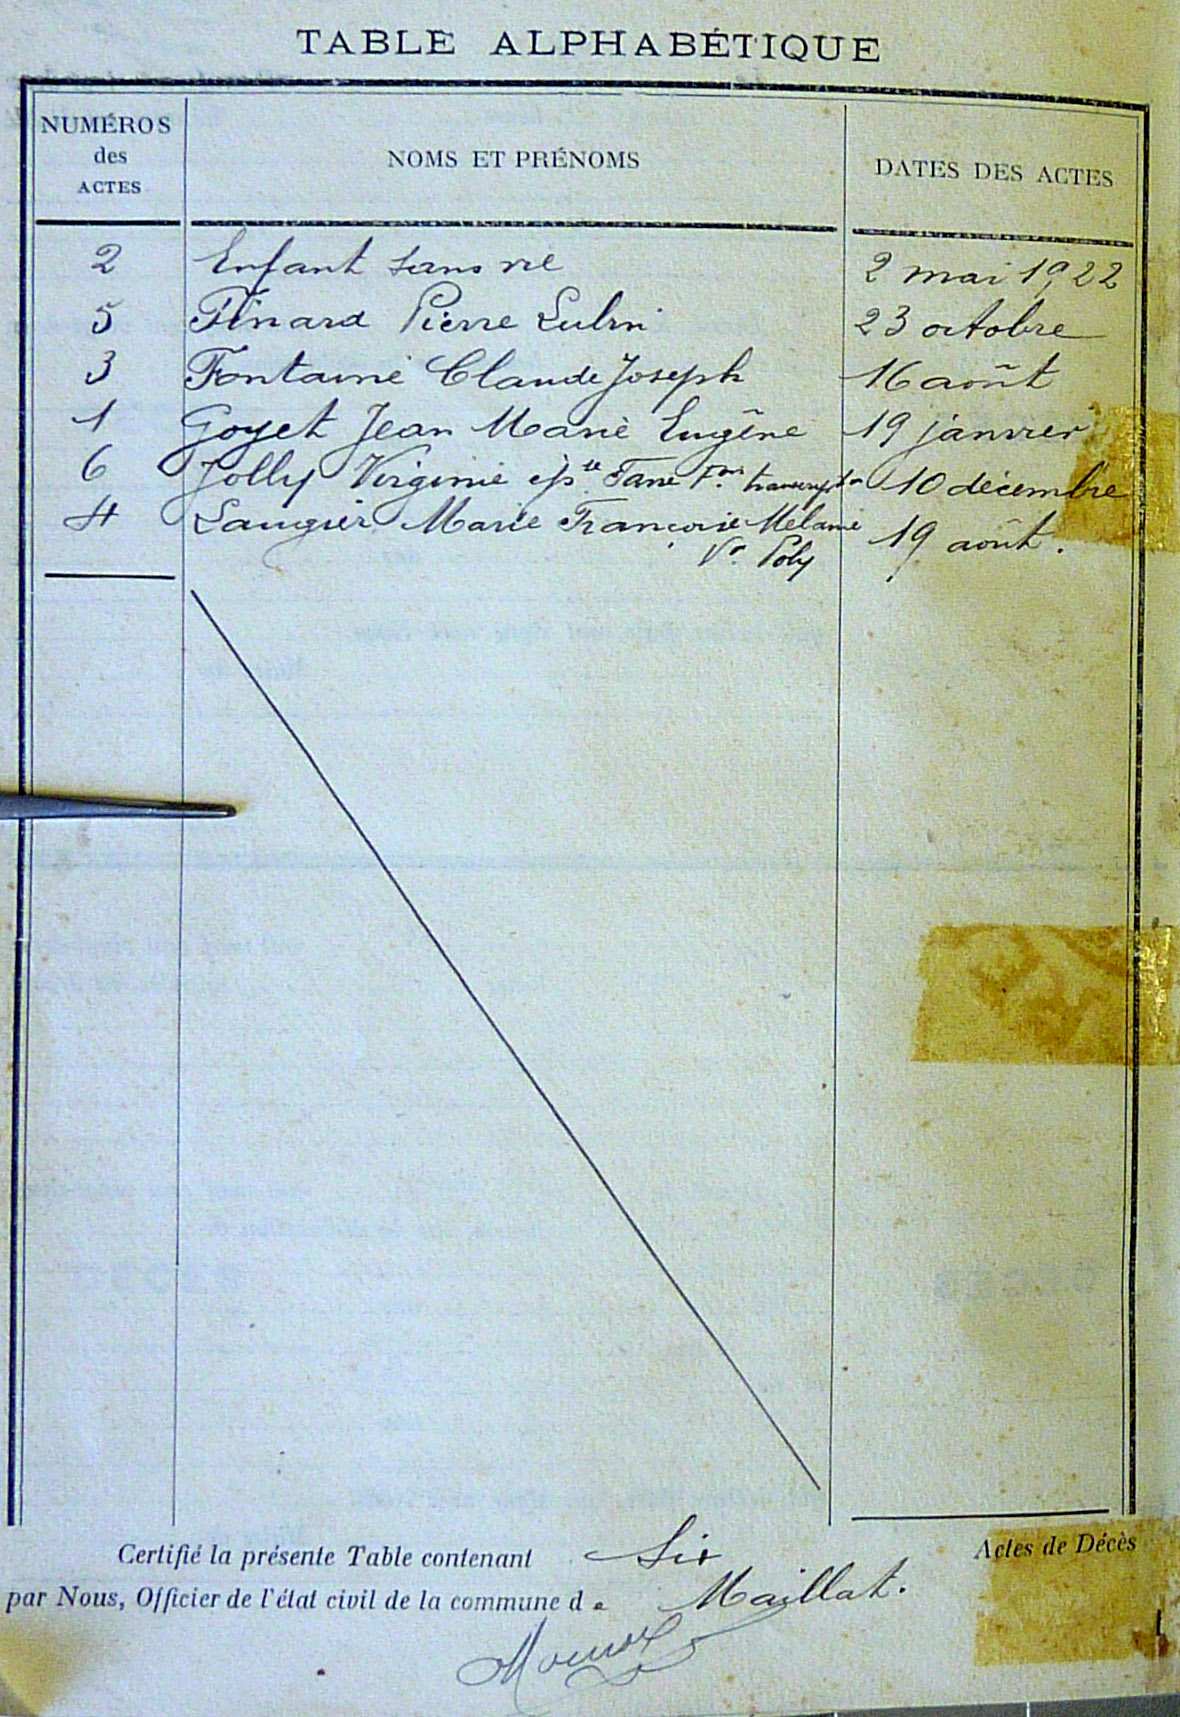 TABLE ALPHABÉTIQUE
NUMÉROS
des
ACTES
NOMS ET PRÉNOMS
DATES DES ACTES
2 Enfant sans vie 2 mai 1922
5 Finard Pierre Lubin 23 octobre
3 Fontaine Claude Joseph 16 août
1 Goyet Jean Marie Eugène 19 janvier
6 Jolly Virginie épse 10 décembre
4 Laugier Marie Françoise Mélanie 19 août.
Ve Poly
Certifié la présente Table contenant Six Actes de Décès
par Nous, Officier de l'état civil de la commune de Maillat.